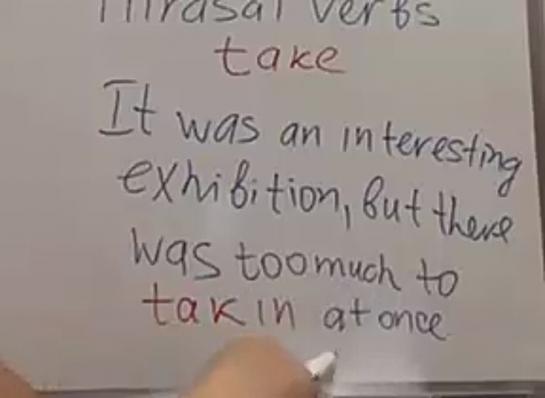 Phrasal verbs
take
It was an interesting
exhibition, but there
was too much to
takin at once